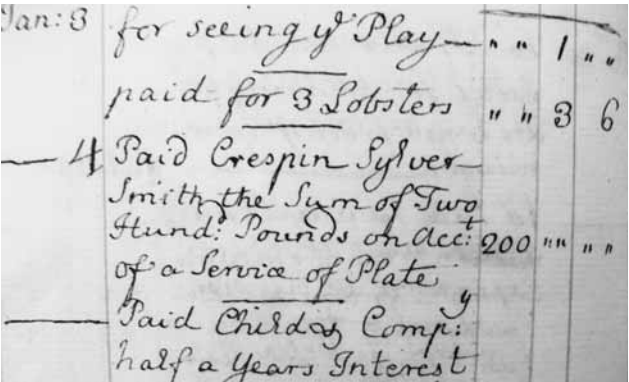 Jan: 3 for seeing yᵉ Play — " " 1 " "
paid for 3 Lobsters " " 3 6
— 4 Paid Crespin Sylver
Smith the Sum of Two
Hundᵈ: Pounds on Accᵗ: 200 " " " "
of a Service of Plate
— Paid Child & Compʸ:
half a Years Interest